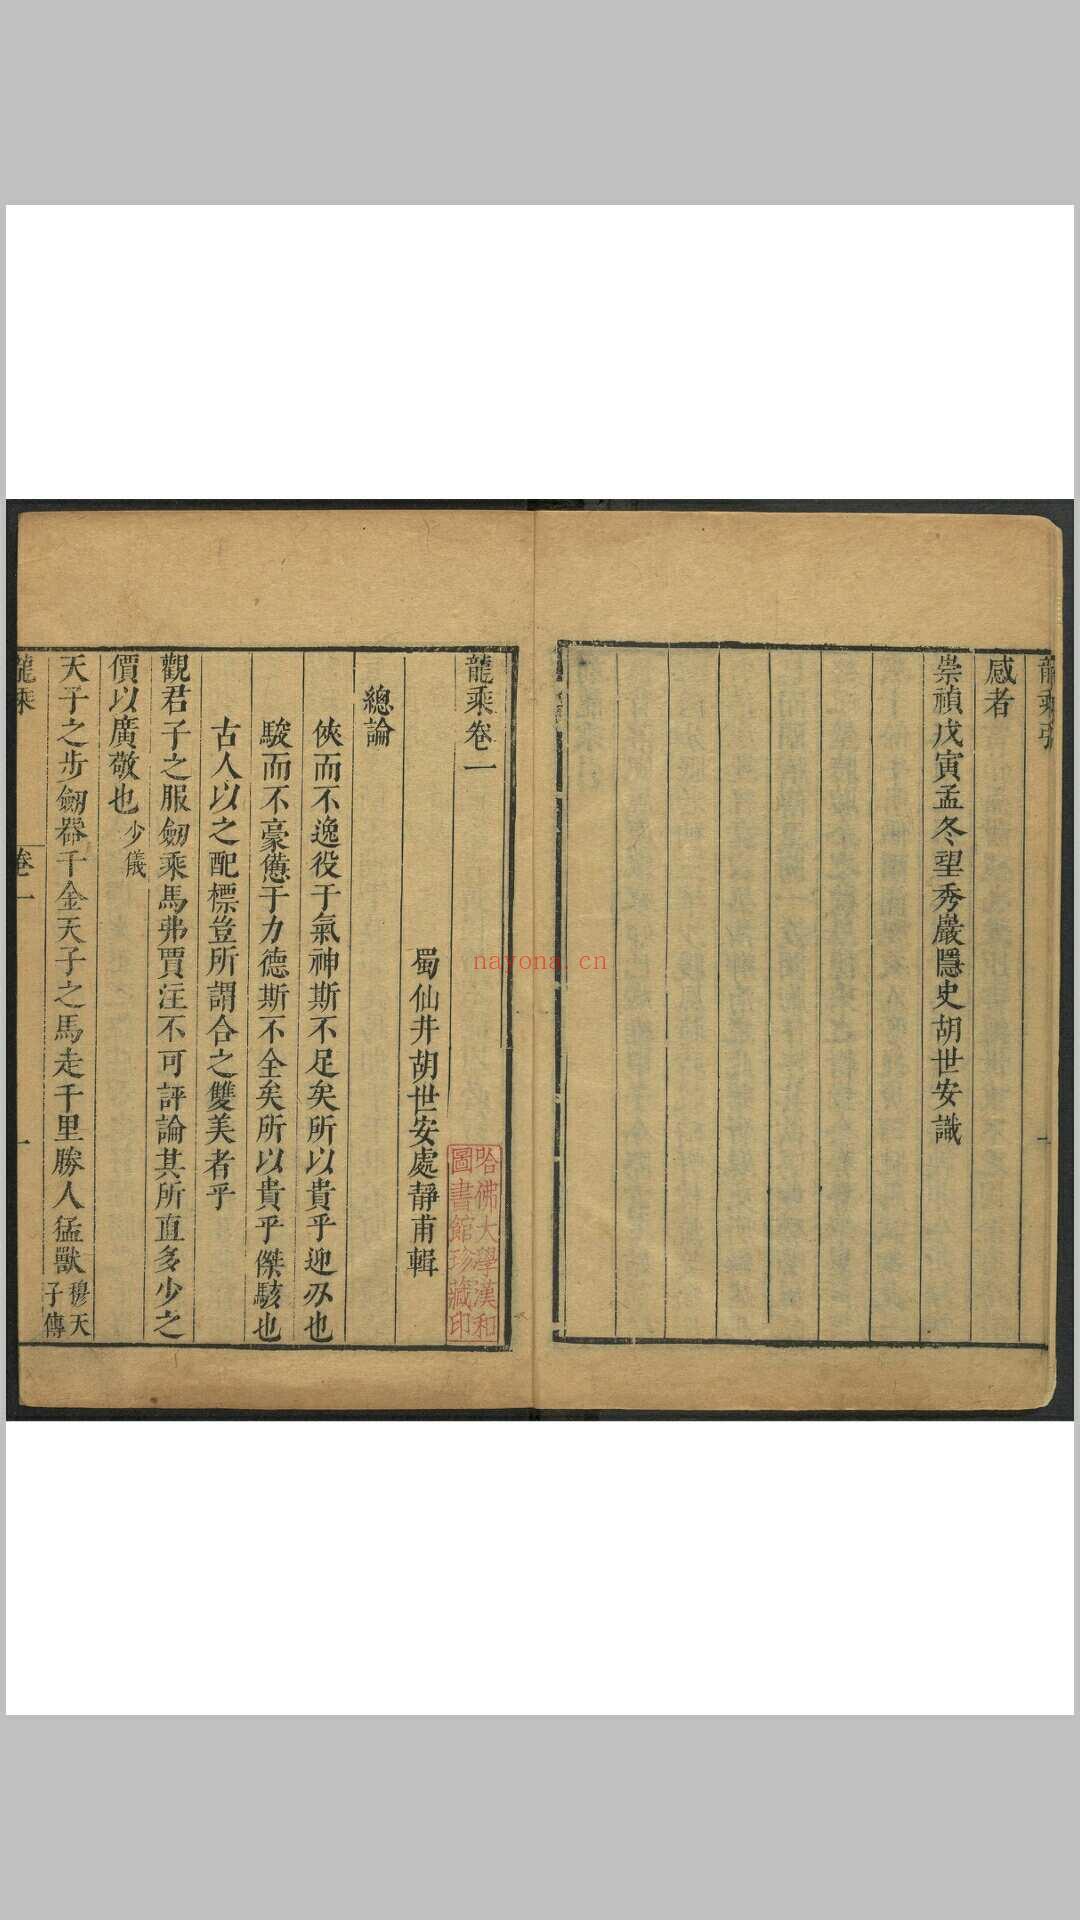 龍乘引
感者
崇禎戊寅孟冬望秀巖隱史胡世安識
龍乘卷一
蜀仙井胡世安處靜甫輯
總論
俠而不逸役于氣神斯不足矣所以貴乎迎刃也
駿而不豪憊于力德斯不全矣所以貴乎傑駭也
古人以之配標豈所謂合之雙美者乎
觀君子之服劒乘馬弗賈注不可評論其所直多少之
價以廣敬也少儀
天子之步劒器千金天子之馬走千里勝人猛獸穆天
子傳
龍乘
卷一
一
哈佛大學漢和
圖書館珍藏印
nayona.cn